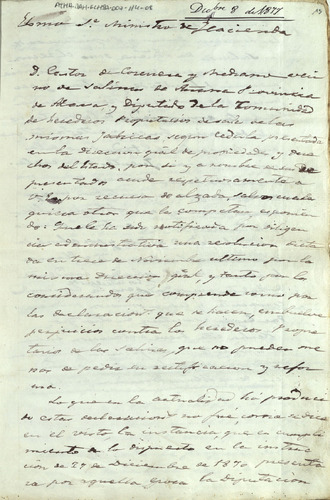 Dicbre 8 de 1877
Excmo Sr Ministro de Hacienda
D. Castor de Cocuera y Medrano vecino
no de Salinas de Añana Provincia
de Alava, y Diputado de la Comunidad
de herederos Propietarios de sales de las
mismas fabricas segun cedula presentada
en la direccion gral de propiedades y derechos
chos del Estado, por si y a nombre de sus representados
presentados acude respetuosamente a
V.E. por recurso de alzada
quiera otros que le competan exponiendo
do: Que le ha sido notificada por diligencia
cia administrativa una resolucion dictada
da en trece de Noviembre ultimo por la
misma direccion gral y tanto por los
considerandos que comprende como por
las declaraciones que se hacen,
perjuicios contra los herederos Propietarios
tarios de las Salinas, que no pueden menos
nos de pedir su rectificacion y reforma
ma.
Lo que en la actualidad ha producido
estas declaraciones no fue otra cosa
en el visto la instancia, que en cumplimiento
miento de lo dispuesto en la instruccion
cion de 27 de Diciembre de 1870 presentada
ca por aquella epoca la Diputacion